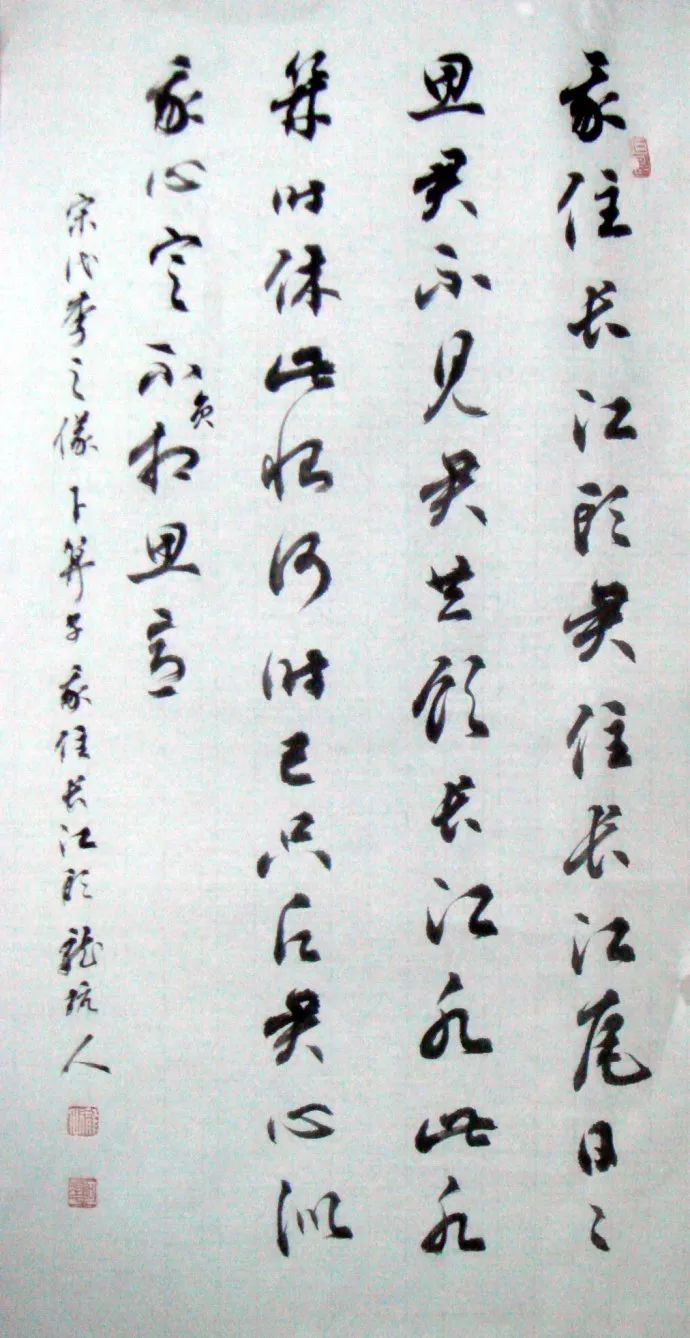 我住长江头君住长江尾日々
思君不见君共饮长江水此水
幾时休此恨何时已只愿君心似
我心定不负相思意
宋代李之儀卜算子我住长江头龍坑人